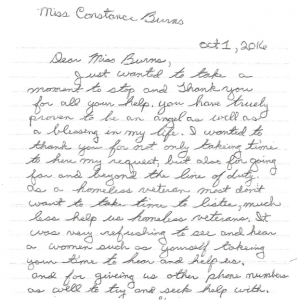 Miss Constance Burns
Oct 1, 2016
Dear Miss Burns,
I just wanted to take a
moment to stop and Thank you
for all your help, you have truely
proven to be an angel as well as
a blessing in my life. I wanted to
thank you for not only taking time
to here my request, but also for going
far and beyond the line of duty.
as a homeless veteran most don't
want to take time to listen, much
less help us homeless veterans. It
was very refreshing to see and hear
a women such as yourself takeing
your time to hear and help us.
and for giveing us other phone numbers
as well to try and seek help with.